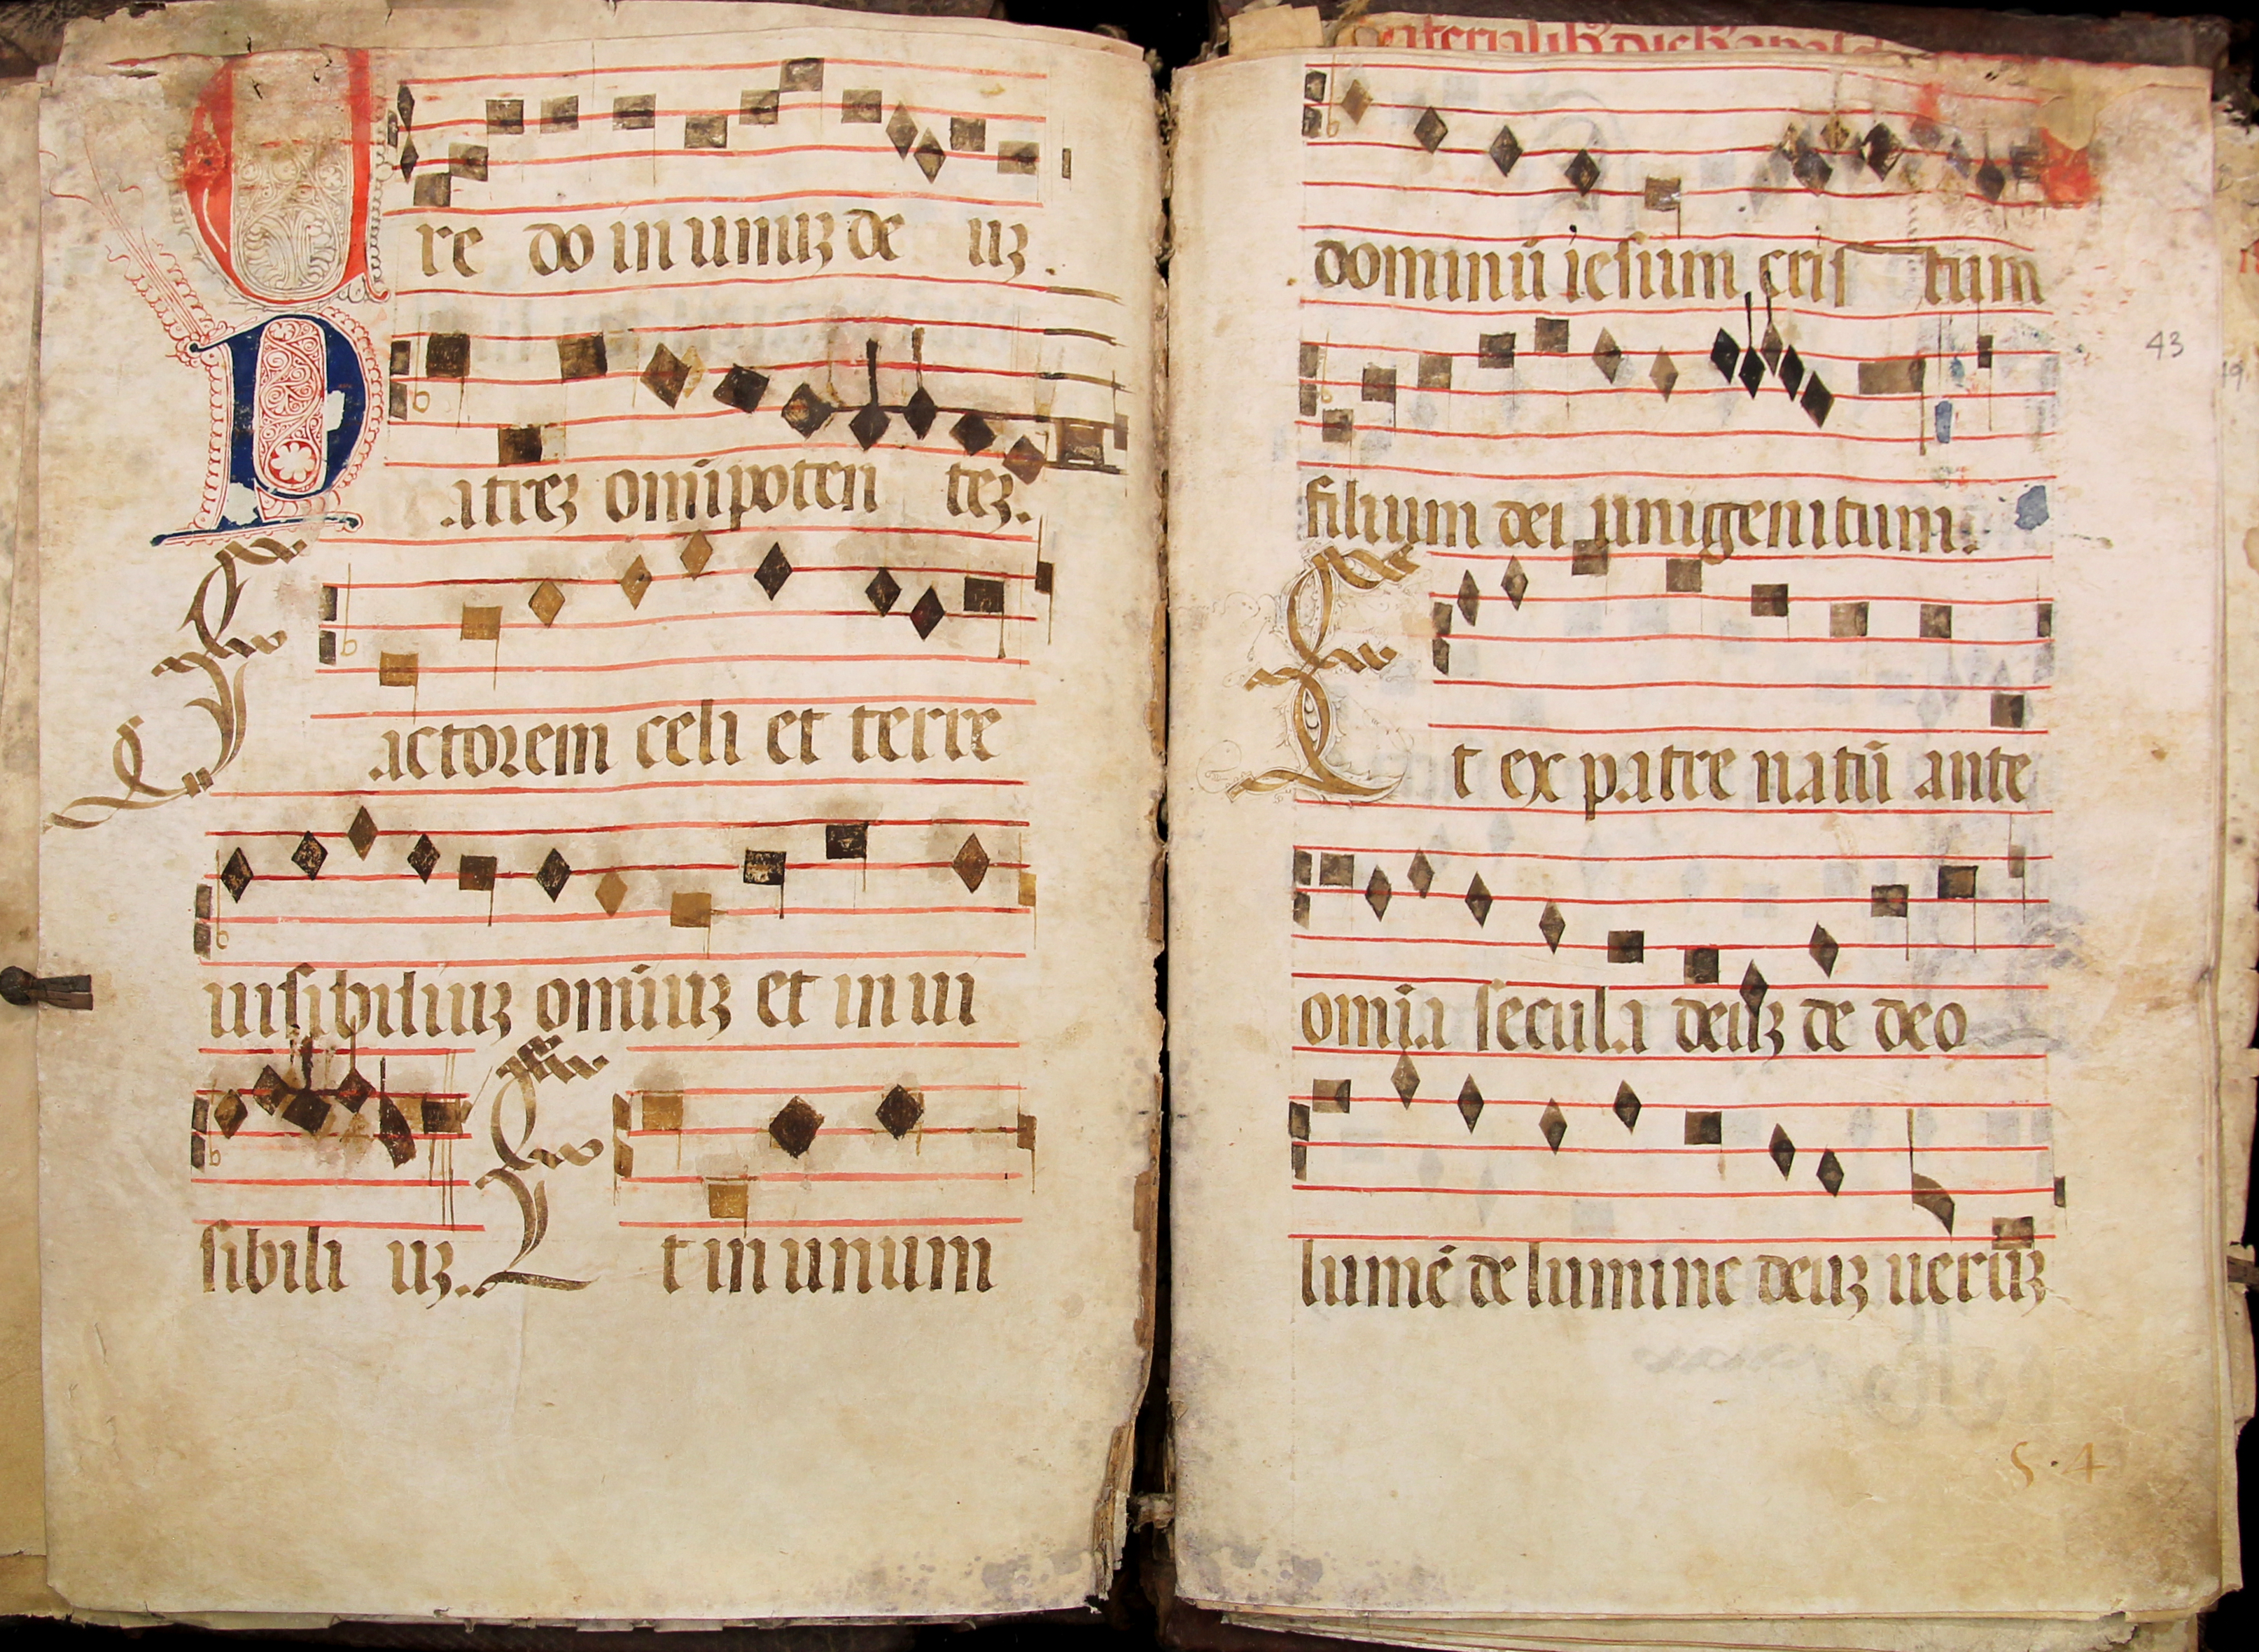 Cre do in unuʒ de uʒ.
Patreʒ omīpoten teʒ.
Factorem celi et terre
uisibiliuʒ omīuʒ et inui
sibili uʒ. Et in unum
dominū iesum cris tum
43
filium dei unigenitum.
Et ex patre natū ante
omīa secula deuʒ de deo
lumē de lumine deuʒ uerūʒ
S·4